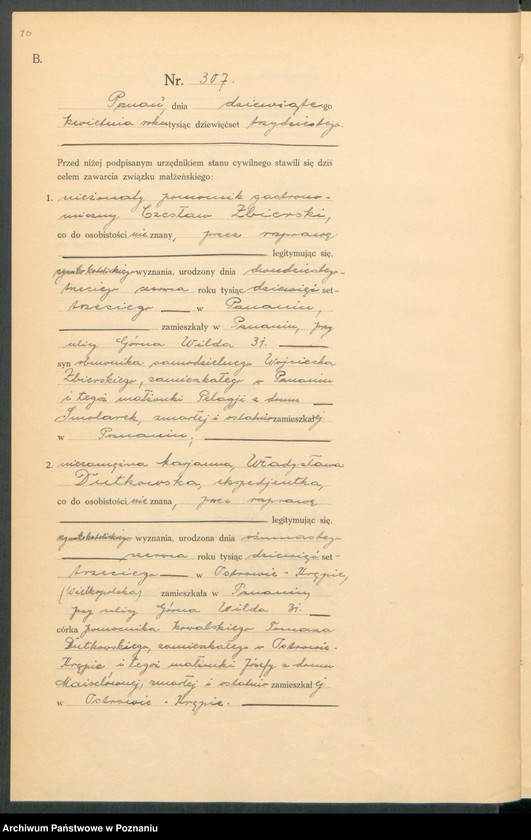 B.
Nr. 307.
Poznań, dnia dziewiątego
kwietnia roku tysiąc dziewięćset trzydziestego.
Przed niżej podpisanym urzędnikiem stanu cywilnego stawili się dziś
celem zawarcia związku małżeńskiego:
1. nieżonaty pomocnik gastrono-
miczny Czesław Zbierski,
co do osobistości nieznany, przez rozprawę
legitymując się,
rzymskokatolickiego wyznania, urodzony dnia dwudziestego-
trzeciego czerwca roku tysiąc dziewięćset-
trzeciego w Poznaniu,
zamieszkały w Poznaniu, przy
ulicy Górna Wilda 31.
syn robotnika samodzielnego Wojciecha
Zbierskiego, zamieszkałego w Poznaniu
i tegoż małżonki Pelagji z domu
Smolarek, zmarłej i ostatnio zamieszkałej
w Poznaniu;
2. niezamężna Marjanna, Władysława
Dutkowska, ekspedjentka,
co do osobistości nieznana, przez rozprawę
legitymując się,
rzymskokatolickiego wyznania, urodzona dnia ósmnastego
czerwca roku tysiąc dziewięćset-
trzeciego w Ostrowie-Krępie,
(Wielkopolska) zamieszkała w Poznaniu
przy ulicy Górna Wilda 31.
córka pomocnika kowalskiego Tomasza
Dutkowskiego, zamieszkałego w Ostrowie-
Krępie i tegoż małżonki Józefy z domu
zmarłej i ostatnio zamieszkałej
w Ostrowie-Krępie.
Archiwum Państwowe w Poznaniu